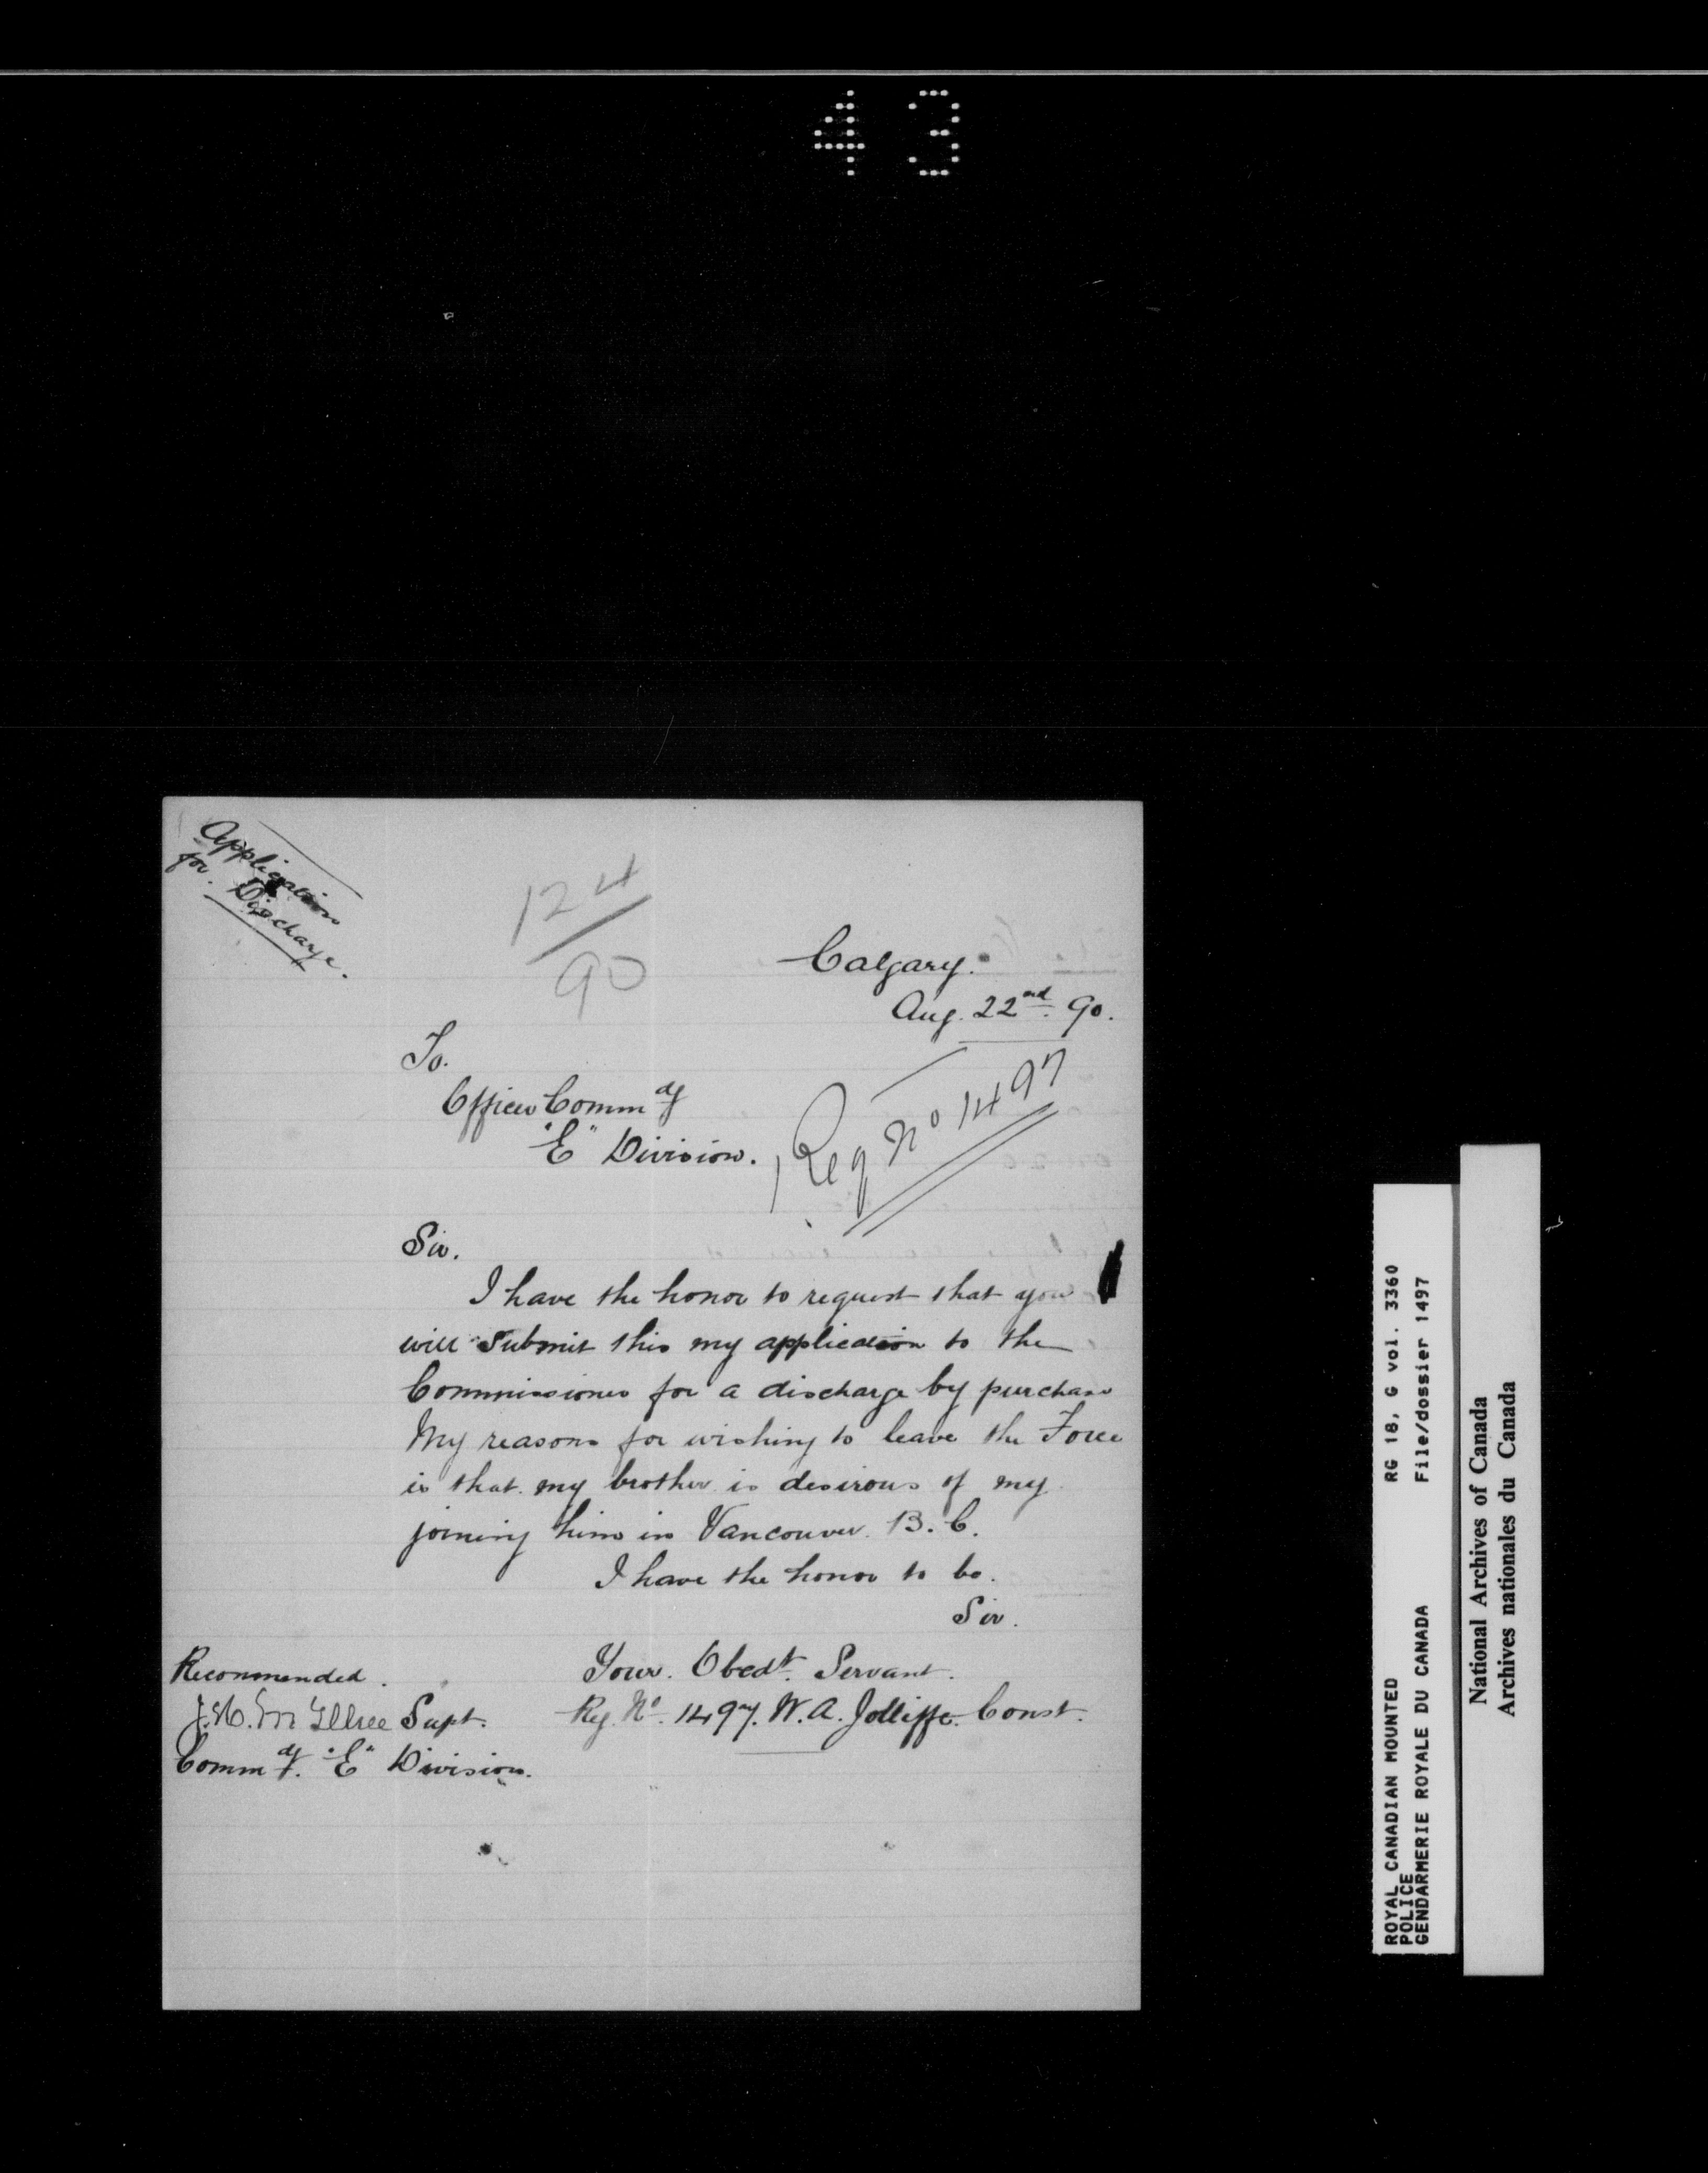 43
Application
for Discharge.
124
90
Calgary.
Aug. 22nd. 90.
To.
Officer Commdg
"E" Division.
Reg No 1497
Sir.
I have the honor to request that you
will submit this my application to the
Commissioner for a discharge by purchase
My reasons for wishing to leave the Force
is that my brother is desirous of my
joining him in Vancouver. B.C.
I have the honor to be.
Sir.
Your. Obedt. Servant.
Reg. No. 1497. W. A. Jolliffe. Const.
Recommended.
McIllree Supt.
Commdg. "E" Division.
ROYAL CANADIAN MOUNTED
POLICE
GENDARMERIE ROYALE DU CANADA
RG 18, G vol. 3360
File/dossier 1497
National Archives of Canada
Archives nationales du Canada